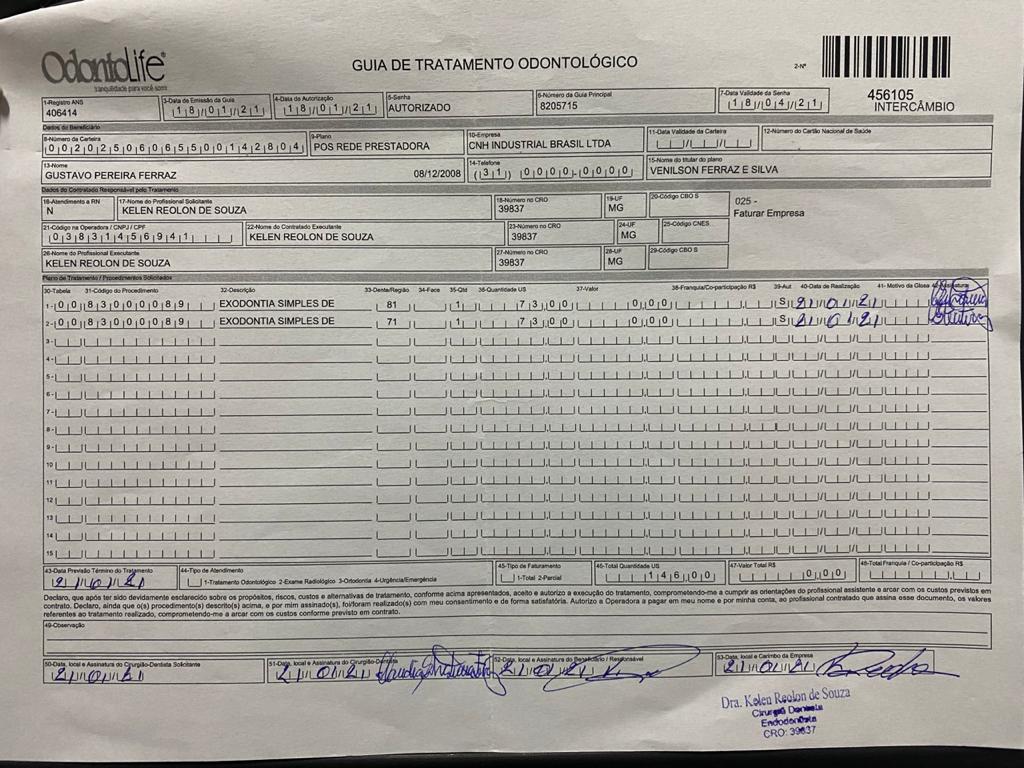 OdontoLife®
tranquilidade para você sorrir
GUIA DE TRATAMENTO ODONTOLÓGICO
2-Nº
456105
INTERCÂMBIO
1-Registro ANS
406414
3-Data de Emissão da Guia
18/01/21
4-Data de Autorização
18/01/21
5-Senha
AUTORIZADO
6-Número da Guia Principal
8205715
7-Data Validade da Senha
18/04/21
Dados do Beneficiário
8-Número da Carteira
00202506065500142804
9-Plano
POS REDE PRESTADORA
10-Empresa
CNH INDUSTRIAL BRASIL LTDA
11-Data Validade da Carteira
12-Número do Cartão Nacional de Saúde
13-Nome
GUSTAVO PEREIRA FERRAZ 08/12/2008
14-Telefone
(31) 0000-0000
15-Nome do titular do plano
VENILSON FERRAZ E SILVA
Dados do Contratado Responsável pelo Tratamento
16-Atendimento a RN
N
17-Nome do Profissional Solicitante
KELEN REOLON DE SOUZA
18-Número no CRO
39837
19-UF
MG
20-Código CBO S
025 -
Faturar Empresa
21-Código na Operadora / CNPJ / CPF
03831456941
22-Nome do Contratado Executante
KELEN REOLON DE SOUZA
23-Número no CRO
39837
24-UF
MG
25-Código CNES
26-Nome do Profissional Executante
KELEN REOLON DE SOUZA
27-Número no CRO
39837
28-UF
MG
29-Código CBO S
Plano de Tratamento / Procedimentos Solicitados
30-Tabela 31-Código do Procedimento 32-Descrição 33-Dente/Região 34-Face 35-Qtd 36-Quantidade US 37-Valor 38-Franquia/Co-participação R$ 39-Aut 40-Data de Realização 41- Motivo da Glosa 42-Assinatura
1- 00 83000089 EXODONTIA SIMPLES DE 81 1 73,00 0,00 S 21/01/21
2- 00 83000089 EXODONTIA SIMPLES DE 71 1 73,00 0,00 S 21/01/21
3-
4-
5-
6-
7-
8-
9-
10
11
12
13
14
15
43-Data Previsão Término do Tratamento
21/01/21
44-Tipo de Atendimento
1-Tratamento Odontológico 2-Exame Radiológico 3-Ortodontia 4-Urgência/Emergência
45-Tipo de Faturamento
1-Total 2-Parcial
46-Total Quantidade US
146,00
47-Valor Total R$
0,00
48-Total Franquia / Co-participação R$
Declaro, que após ter sido devidamente esclarecido sobre os propósitos, riscos, custos e alternativas de tratamento, conforme acima apresentados, aceito e autorizo a execução do tratamento, comprometendo-me a cumprir as orientações do profissional assistente e arcar com os custos previstos em
contrato. Declaro, ainda que o(s) procedimento(s) descrito(s) acima, e por mim assinado(s), foi/foram realizado(s) com meu consentimento e de forma satisfatória. Autorizo a Operadora a pagar em meu nome e por minha conta, ao profissional contratado que assina esse documento, os valores
referentes ao tratamento realizado, comprometendo-me a arcar com os custos conforme previsto em contrato.
49-Observação
50-Data, local e Assinatura do Cirurgião-Dentista Solicitante
21/01/21
51-Data, local e Assinatura do Cirurgião-Dentista
21/01/21
52-Data, local e Assinatura do Beneficiário / Responsável
21/01/21
53-Data, local e Carimbo da Empresa
21/01/21
Dra. Kelen Reolon de Souza
Cirurgiã Dentista
Endodontista
CRO: 39837